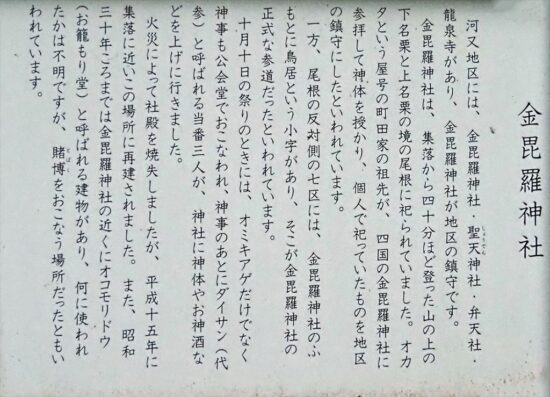 金毘羅神社
河又地区には、金毘羅神社・聖天神社・弁天社・
龍泉寺があり、金毘羅神社が地区の鎮守です。
金毘羅神社は、集落から四十分ほど登った山の上の
下名栗と上名栗の境の尾根に祀られていました。オカ
タという屋号の町田家の祖先が、四国の金毘羅神社に
参拝して神体を授かり、個人で祀っていたものを地区
の鎮守にしたといわれています。
一方、尾根の反対側の七区には、金毘羅神社のふ
もとに鳥居という小字があり、そこが金毘羅神社の
正式な参道だったといわれています。
十月十日の祭りのときには、オミキアゲだけでなく
神事も公会堂でおこなわれ、神事のあとにダイサン（代
参）と呼ばれる当番三人が、神社に神体やお神酒な
どを上げに行きました。
火災によって社殿を焼失しましたが、平成十五年に
集落に近いこの場所に再建されました。また、昭和
三十年ころまでは金毘羅神社の近くにオコモリドウ
（お籠もり堂）と呼ばれる建物があり、何に使われ
たかは不明ですが、賭博をおこなう場所だったともい
われています。